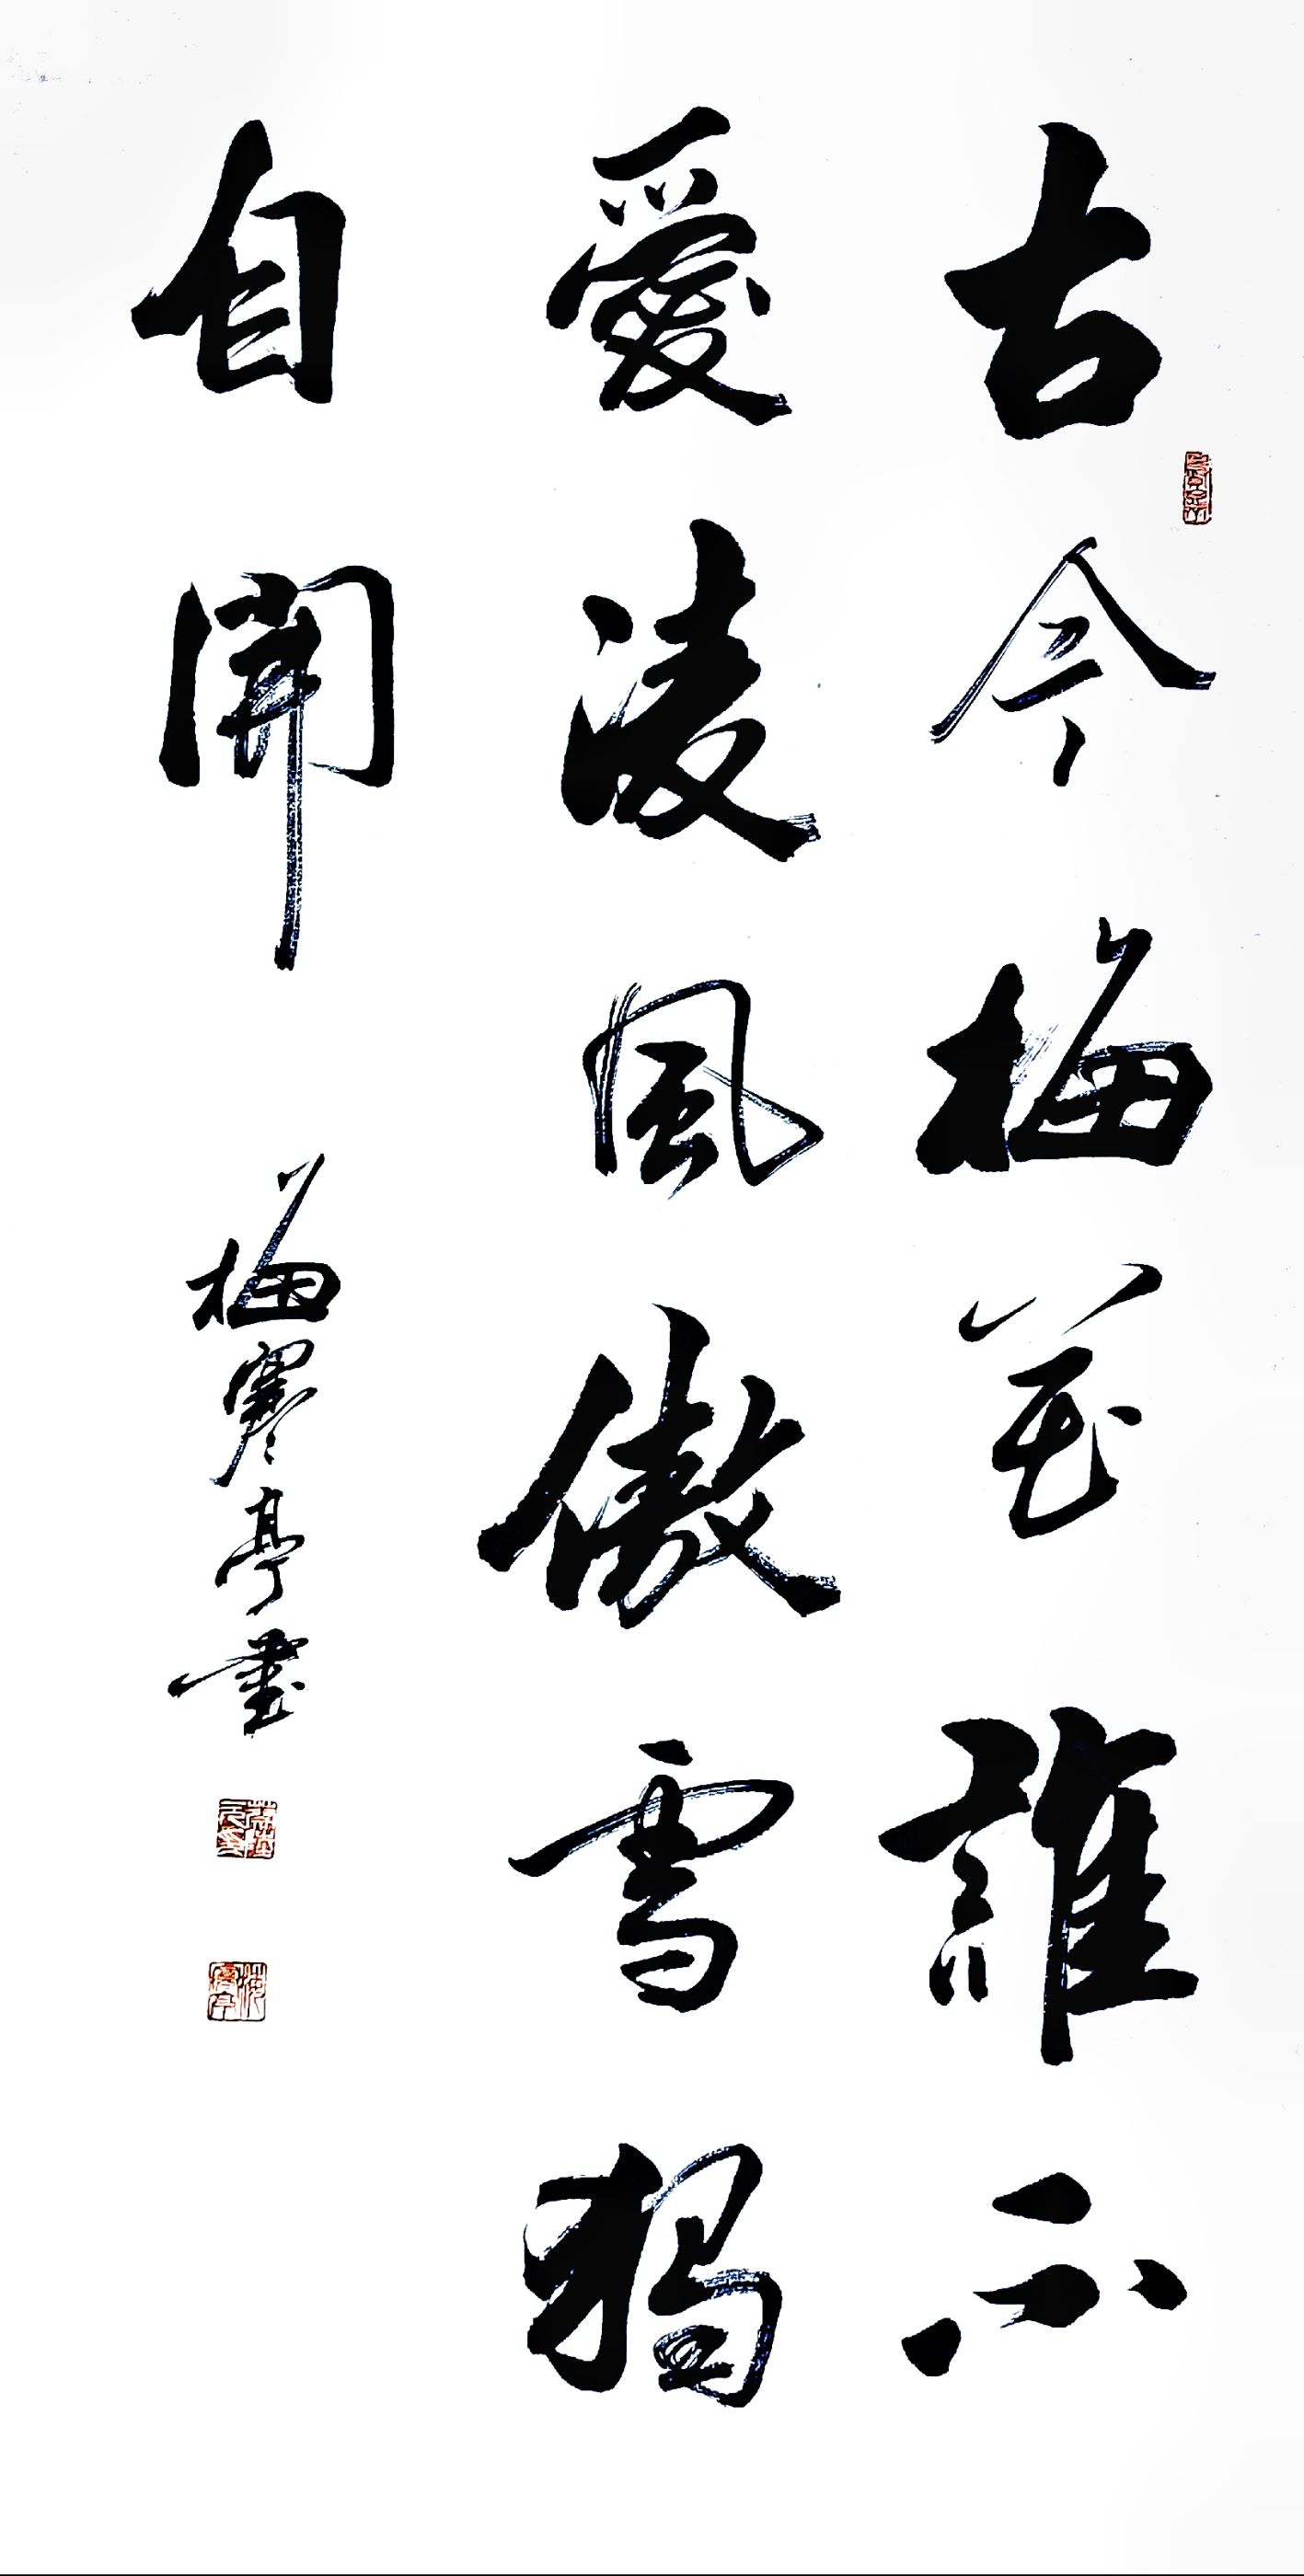 古今梅花誰不
愛凌風傲雪獨
自開
梅寒亭書